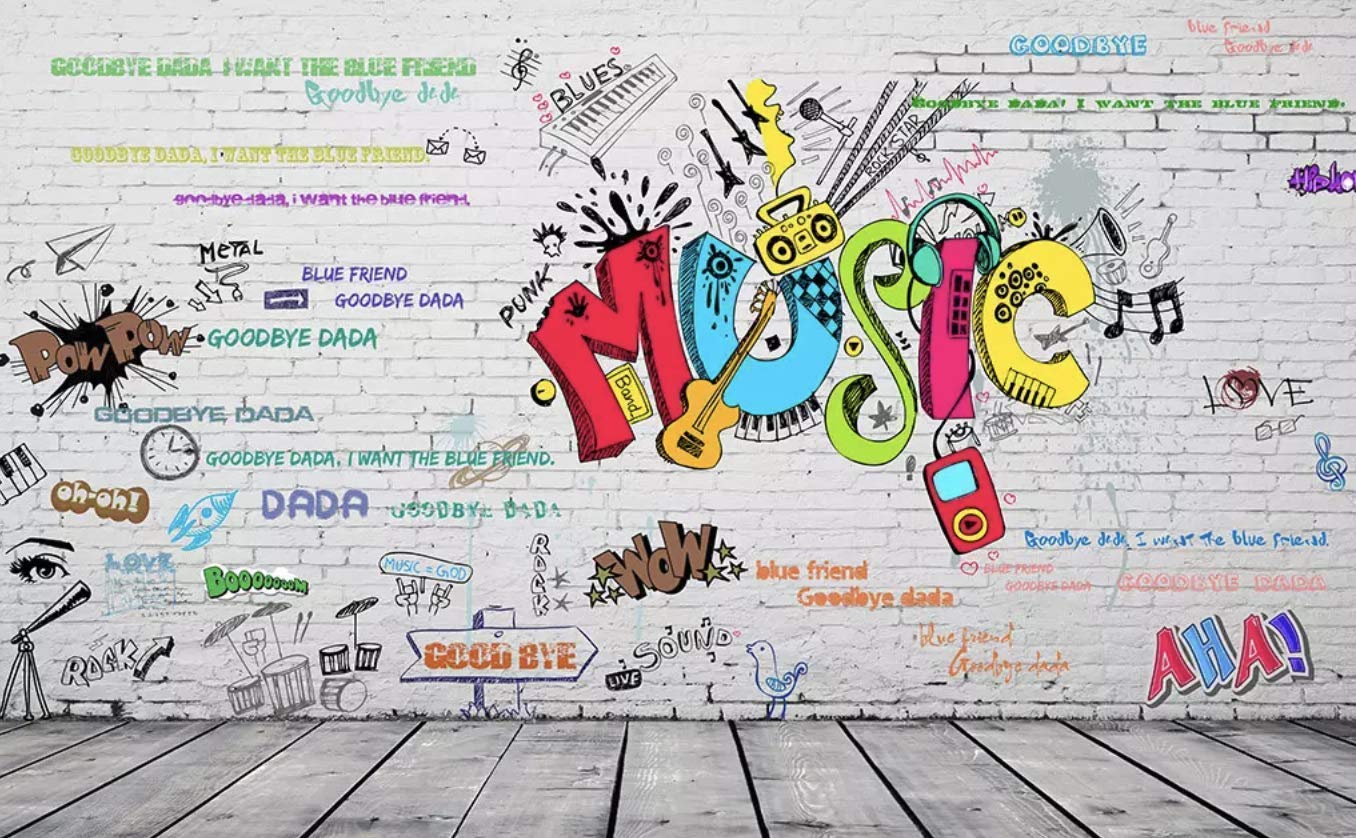 GOODBYE
blue friend
Goodbye dada
GOODBYE DADA I WANT THE BLUE FRIEND
Goodbye dada
BLUES
GOODBYE DADA! I WANT THE BLUE FRIEND.
ROCK STAR
GOODBYE DADA, I WANT THE BLUE FRIEND.
goodbye dada, i want the blue friend.
METAL
PUNK
BLUE FRIEND
GOODBYE DADA
POW POW
GOODBYE DADA
MUSIC
Band
LOVE
GOODBYE DADA
GOODBYE DADA, I WANT THE BLUE FRIEND.
oh-oh!
DADA
GOODBYE DADA
LOVE
BOOOOOOOM
MUSIC = GOD
ROCK
WOW
blue friend
Goodbye dada
Goodbye dada, I want the blue friend.
BLUE FRIEND
GOODBYE DADA
GOODBYE DADA
ROCK
GOOD BYE
SOUND
LIVE
blue friend
Goodbye dada
AHA!